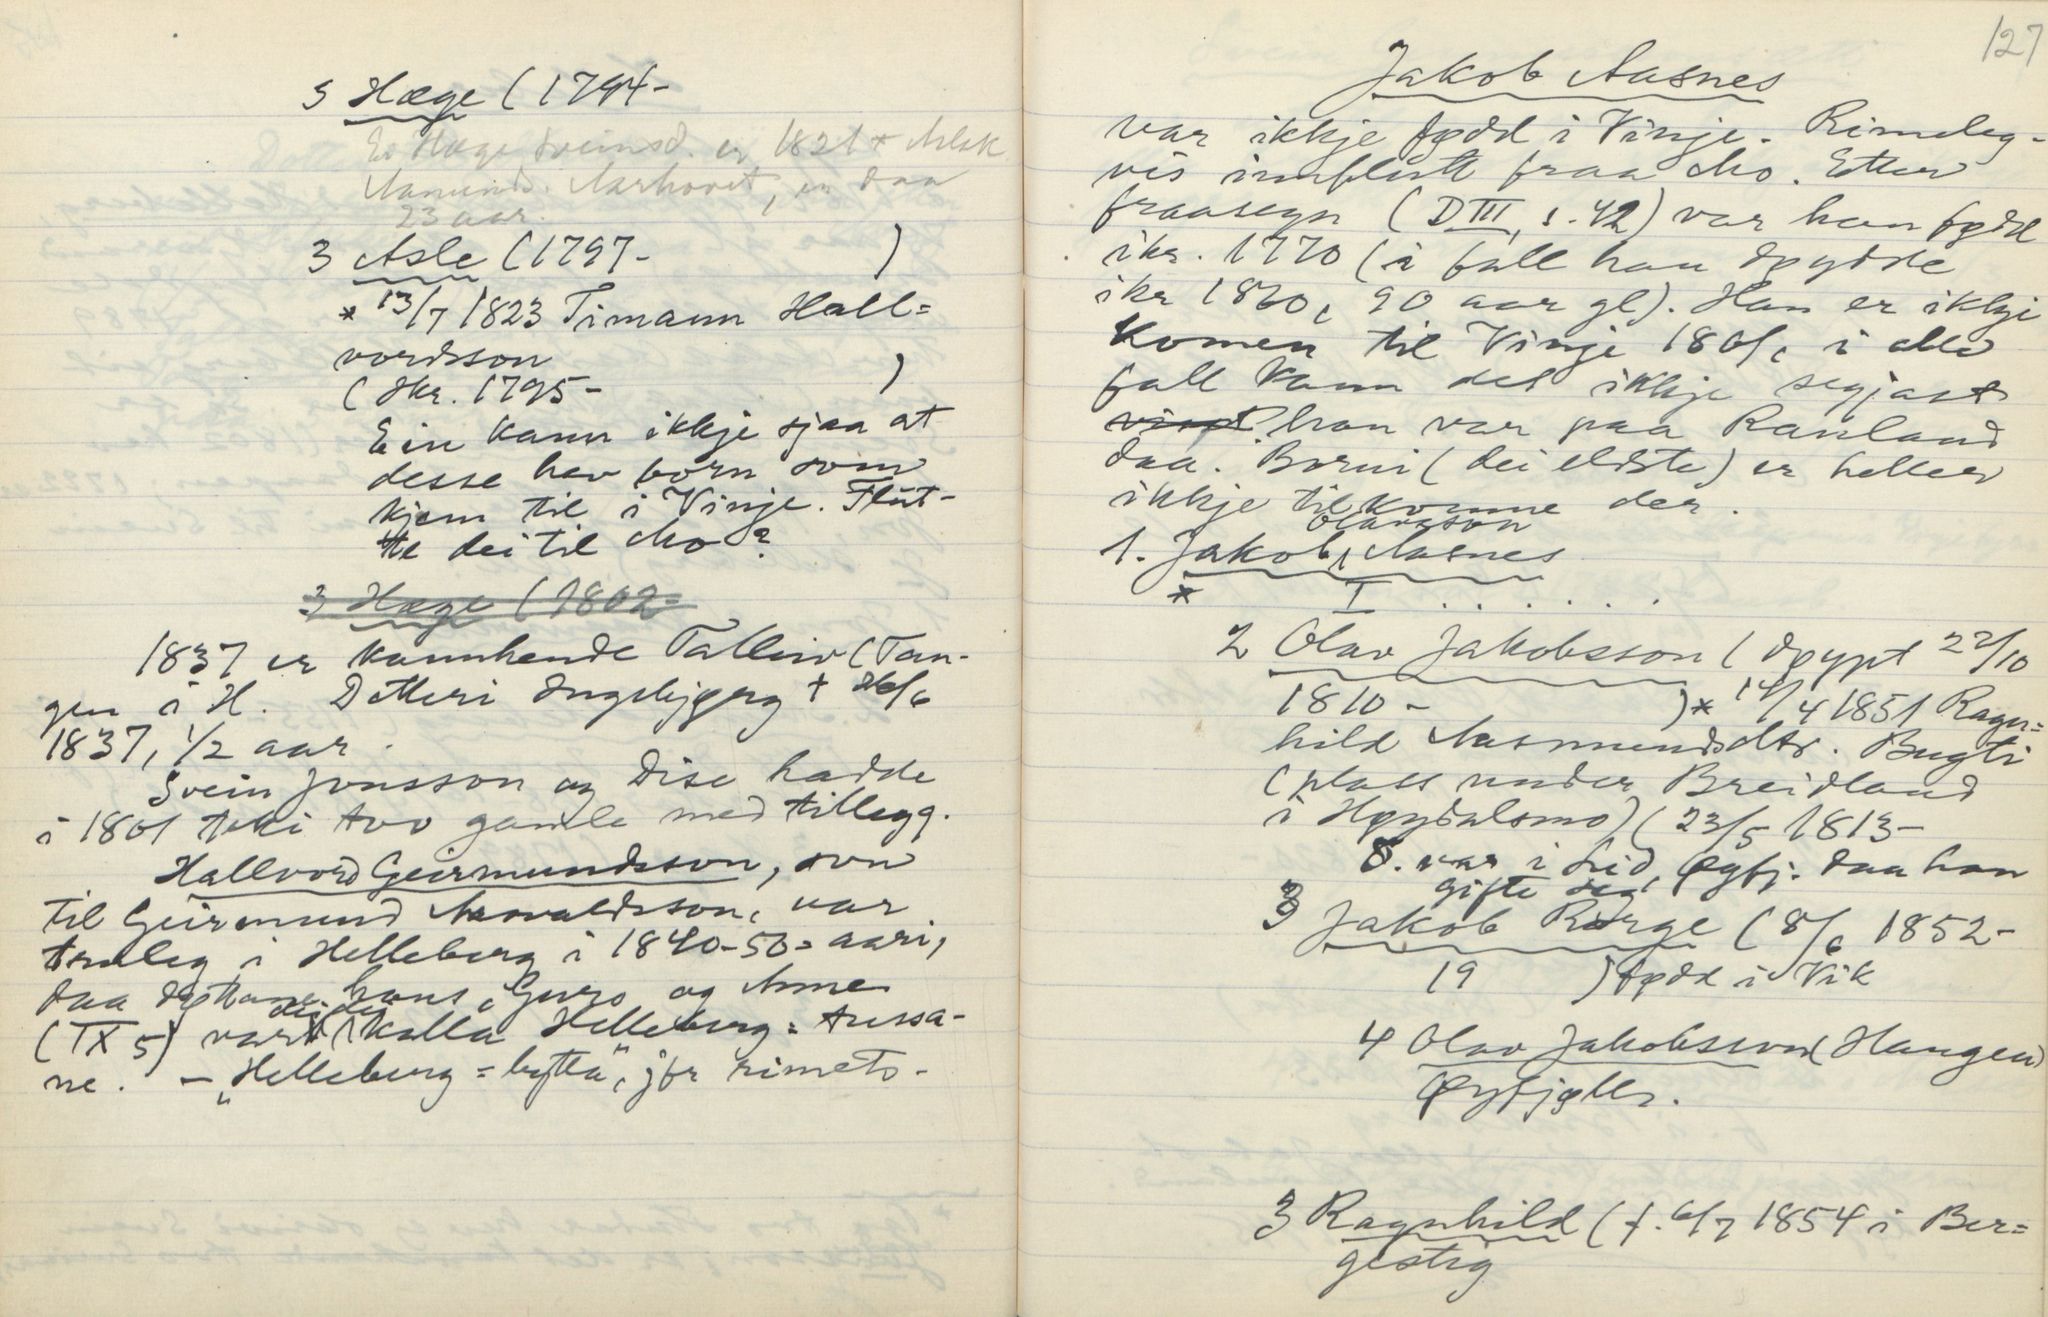 3 Hæge (1794-
Ei Hæge Sveinsd. er 1821 * Aslak
Aamunds. Aarhovet, er daa
23 aar.
3 Asle (1797- )
* 13/7 1823 Timann Hall=
vordsson
(Ikr. 1795- )
Ein kann ikkje sjaa at
desse hev born som
kjem til i Vinje. Flut-
te dei til Mo?
3 Hæge (1802=
1837 er kannhende Talleiv (Tan-
gen i H. Dotteri Ingebjørg † /6
1837, 1/2 aar.
Svein Jonsson og Dise hadde
i 1801 teki tvo gamle med tillegg.
Hallvord Geirmundsson, son
til Geirmund Aasvaldsson, var
truleg i Helleberg i 1840-50-aari,
daa døttane hans, Guro og Anne
(IX 5) vart kalla Helleberg=tussa-
ne. — "Helleberg=bytta", jfr rimets-
127
Jakob Aasnes
var ikkje fødd i Vinje. Rimeleg-
vis innflutt fraa Mo. Etter
fraasegn (D III, s. 42) var han fødd
ikr. 1770 (i fall han døydde
ikr 1860, 90 aar gl). Han er ikkje
komen til Vinje 1801, i alle
fall kann det ikkje segjast
visst han var paa Rauland
daa. Borni (dei eldste) er heller
ikkje tilkomne der.
Olavsson
1. Jakob Aasnes
* I . . . . . .
2 Olav Jakobsson (døypt 22/10
1810- ) * 14/4 1851 Ragn=
hild Aasmundsdtr. Bugti
(plass under Breidland
i Høydalsmo) (23/5 1813-
O. var i Lid, Øyfj. daa han
gifte seg
3 Jakob Rorge (8/6 1852-
19 ) fødd i Vik
4 Olav Jakobsson (Haugen)
Øyfjøll.
3 Ragnhild (f. 6/7 1854 i Ber=
gestig